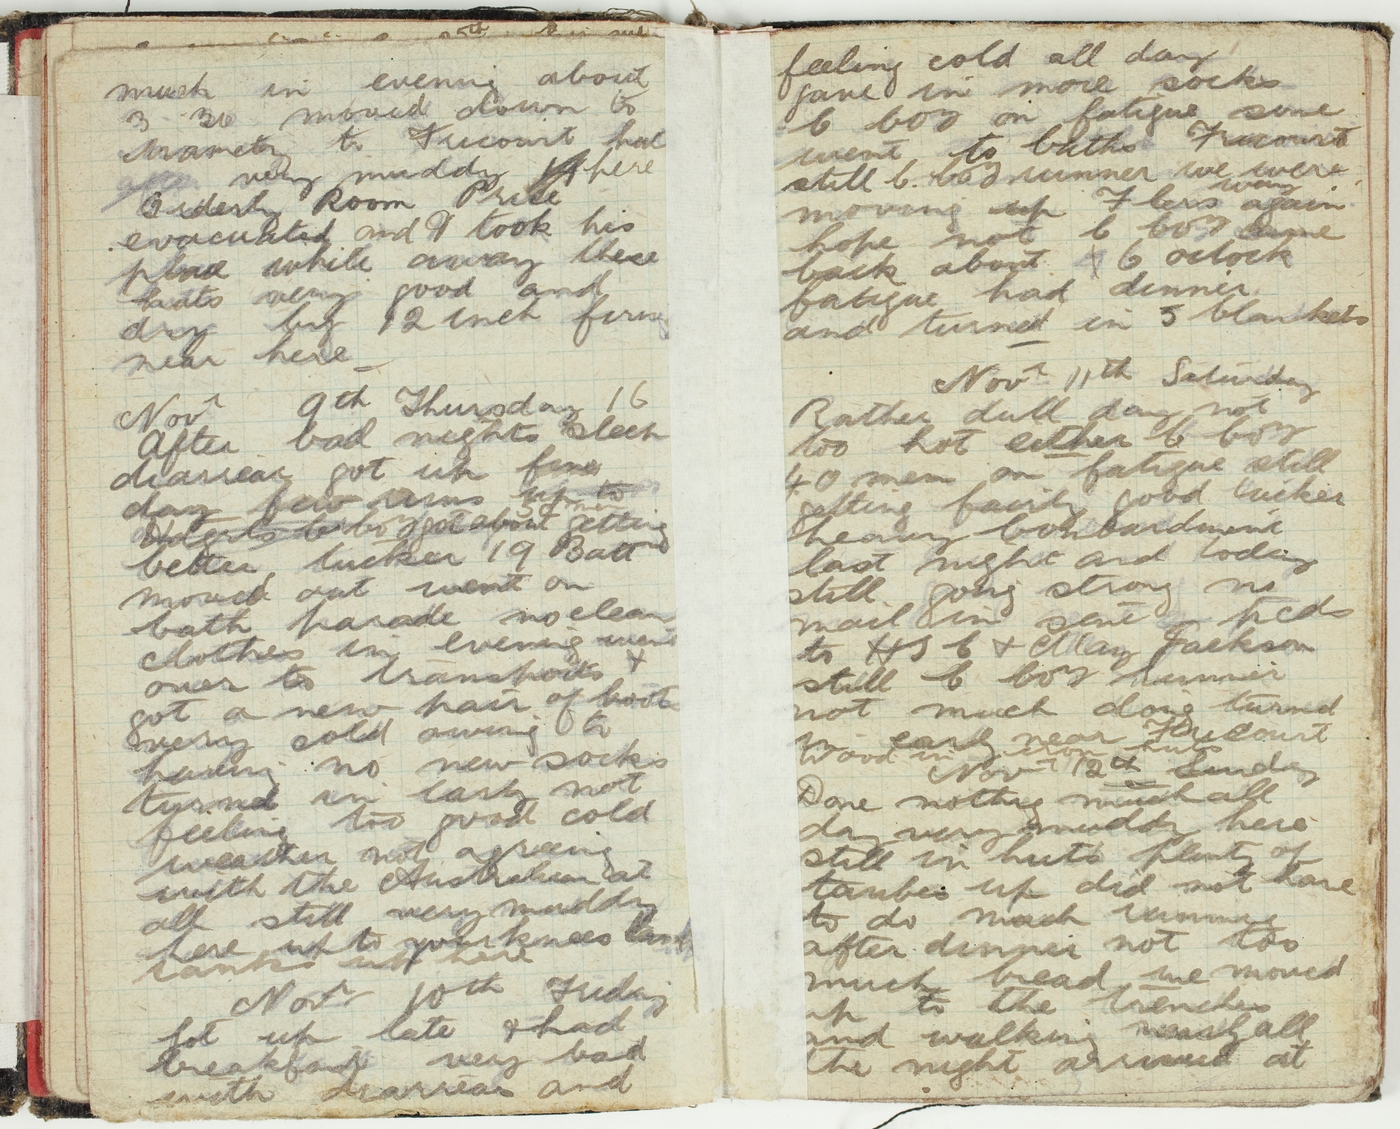 much in evening about
3-30 moved down to
to Fricourt had
very muddy here
Orderly Room Price
evacuated and I took his
place while away these
huts very good and
dry big 12 inch firing
near here –
Novr 9th Thursday 16
After bad nights sleep
diarrear got up fine
day few runs up to
Hdqrts C Coy got about getting
better tucker 19 Battn
moved out went on
bath parade no clean
clothes in evening went
over to transports &
got a new pair of boots
very cold owing to
having no new socks
turned in early not
feeling too good cold
weather not agreeing
with the Australian at
all still very muddy
here up to your knees
tanks up here
Novr 10th Friday
Got up late & had
breakfast very bad
with diarrear and
feeling cold all day
gave in more socks
C Coy on fatigue some
went to baths Fricourt
still C. Coy runner we were
moving up Flers way again
hope not C Coy came
back about 6 oclock
fatigue had dinner
and turned in 3 blankets
Novr 11th Saturday
Rather dull day not
too hot either C Coy
40 men on fatigue still
getting fairly good tucker
heavy bombardment
last night and today
still going strong no
mail in sent pcds
to H J C & May Jackson
still C Coy runner
not much doing turned
in early near Fricourt
Wood in iron huts
Novr 12th Sunday
Done nothing much all
day very muddy here
still in huts plenty of
taubes up did not have
to do much running
after dinner not too
much bread we moved
up to the trenches
and walking nearly all
the night arrived at